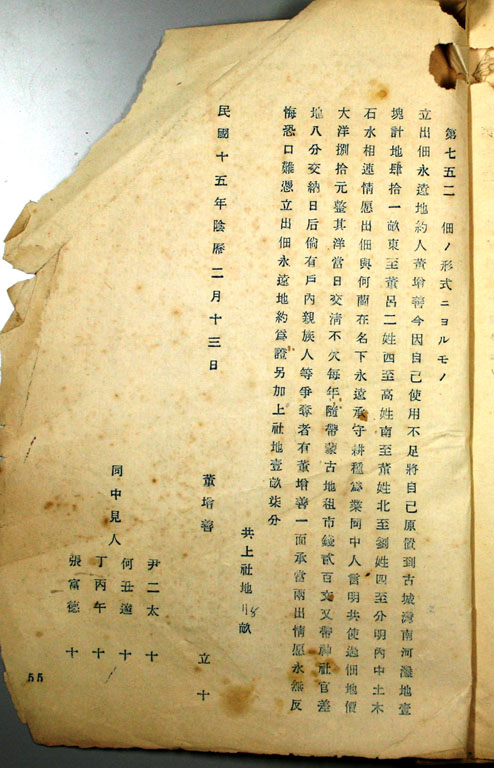 第七五二　佃ノ形式ニヨルモノ
立出佃永遠地約人董增善今因自己使用不足將自己原置到古城灣南河灘地壹
塊計地肆拾一畝東至董呂二姓西至高姓南至董姓北至劉姓四至分明內中土木
石水相連情愿出佃與何蘭在名下永遠承守耕種爲業同中人言明共使過佃地價
大洋捌拾元整其洋當日交清不欠每年隨帶蒙古地租市錢貳百文又帶神社官差
地八分交納日后倘有戶內親族人等爭奪者有董增善一面承當兩出情愿永無反
悔恐口難憑立出佃永遠地約爲證另加上社地壹畝柒分
共上社地畝
民國十五年陰曆二月十三日
董增善　立　十
同中見人
尹二太　十
何丑 十
丁丙午　十
張富德　十
55